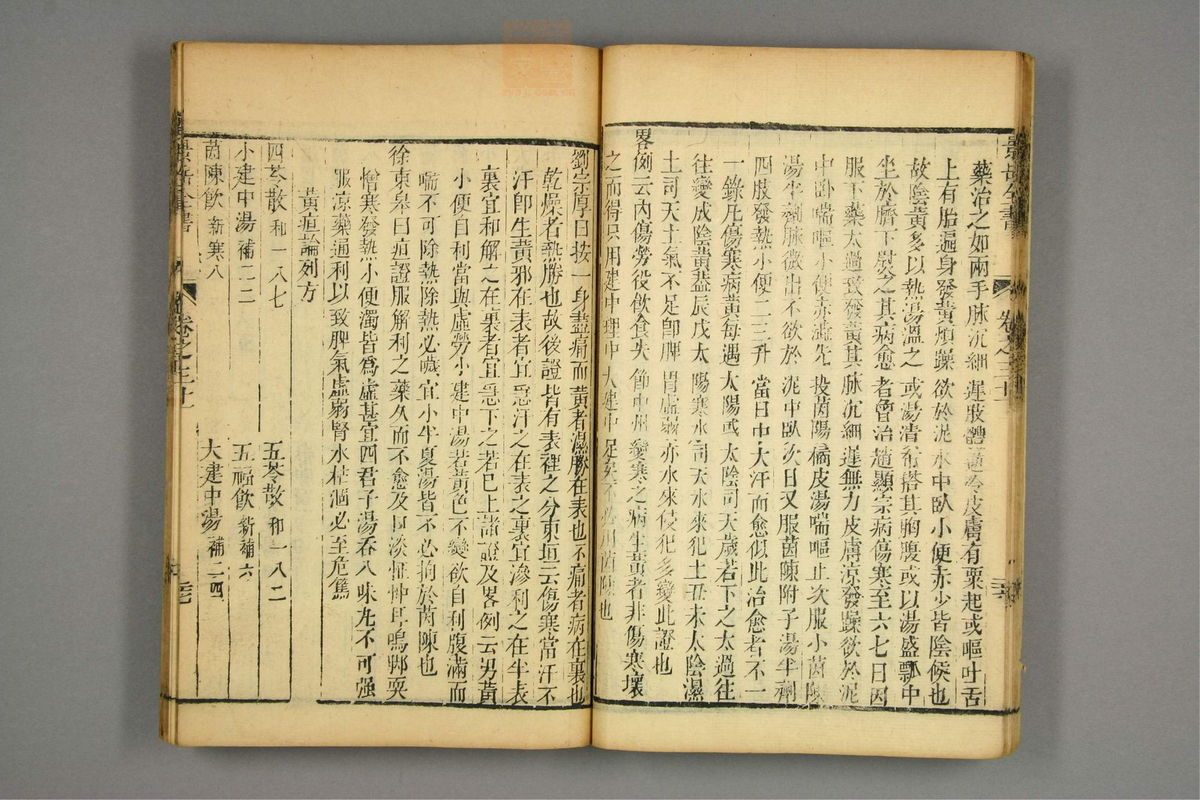 景岳全書 卷之三十一
藥治之如兩手脉沉細遲肢體逆冷皮膚有粟起或嘔吐舌
上有胎遍身發黃煩躁欲於泥水中臥小便赤少皆陰候也
故陰黃多以熱湯溫之或湯漬布搭其胸腹或以湯盛瓢中
坐於臍下熨之其病愈者曾治趙顯宗病傷寒至六七日因
服下藥太過致發黃其脉沉細遲無力皮膚涼發躁欲於泥
中臥喘嘔小便赤澁先投茵陳橘皮湯喘嘔止次服小茵陳
湯半劑脉微出不欲於泥中臥次日又服茵陳附子湯半劑
四肢發熱小便二三升當日中大汗而愈似此治愈者不一
一錄凡傷寒病黃每遇太陽或太陰司天歲若下之太過往
往變成陰黃蓋辰戌太陽寒水司天水來犯土丑未太陰濕
土司天土氣不足卽脾胃虛弱亦水來侵犯多變此證也
畧例云內傷勞役飲食失節中州變寒之病生黃者非傷寒壞
之而得只用建中理中大建中足矣不必用茵陳也
劉宗厚曰按一身盡痛而黃者濕勝在表也不痛者病在裏也
乾燥者熱勝也故後證皆有表裡之分東垣云傷寒當汗不
汗卽生黃邪在表者宜急汗之在表之裏宜滲利之在半表
裏宜和解之在裏者宜急下之若巳上諸證及畧例云男黃
小便自利當與虛勞小建中湯若黃色不變欲自利腹滿而
喘不可除熱除熱必噦宜小半夏湯皆不必拘於茵陳也
徐東皋曰疸證服解利之藥久而不愈及口淡怔忡耳鳴脚耎
憎寒發熱小便濁皆爲虛甚宜四君子湯吞八味丸不可强
服涼藥通利以致脾氣虛弱腎水枯涸必至危篤
黃疸論列方
四苓散 和一八七
五苓散 和一八二
小建中湯 補二二
五福飲 新補六
茵陳飲 新寒八
大建中湯 補二四
景岳全書 卷之三十一